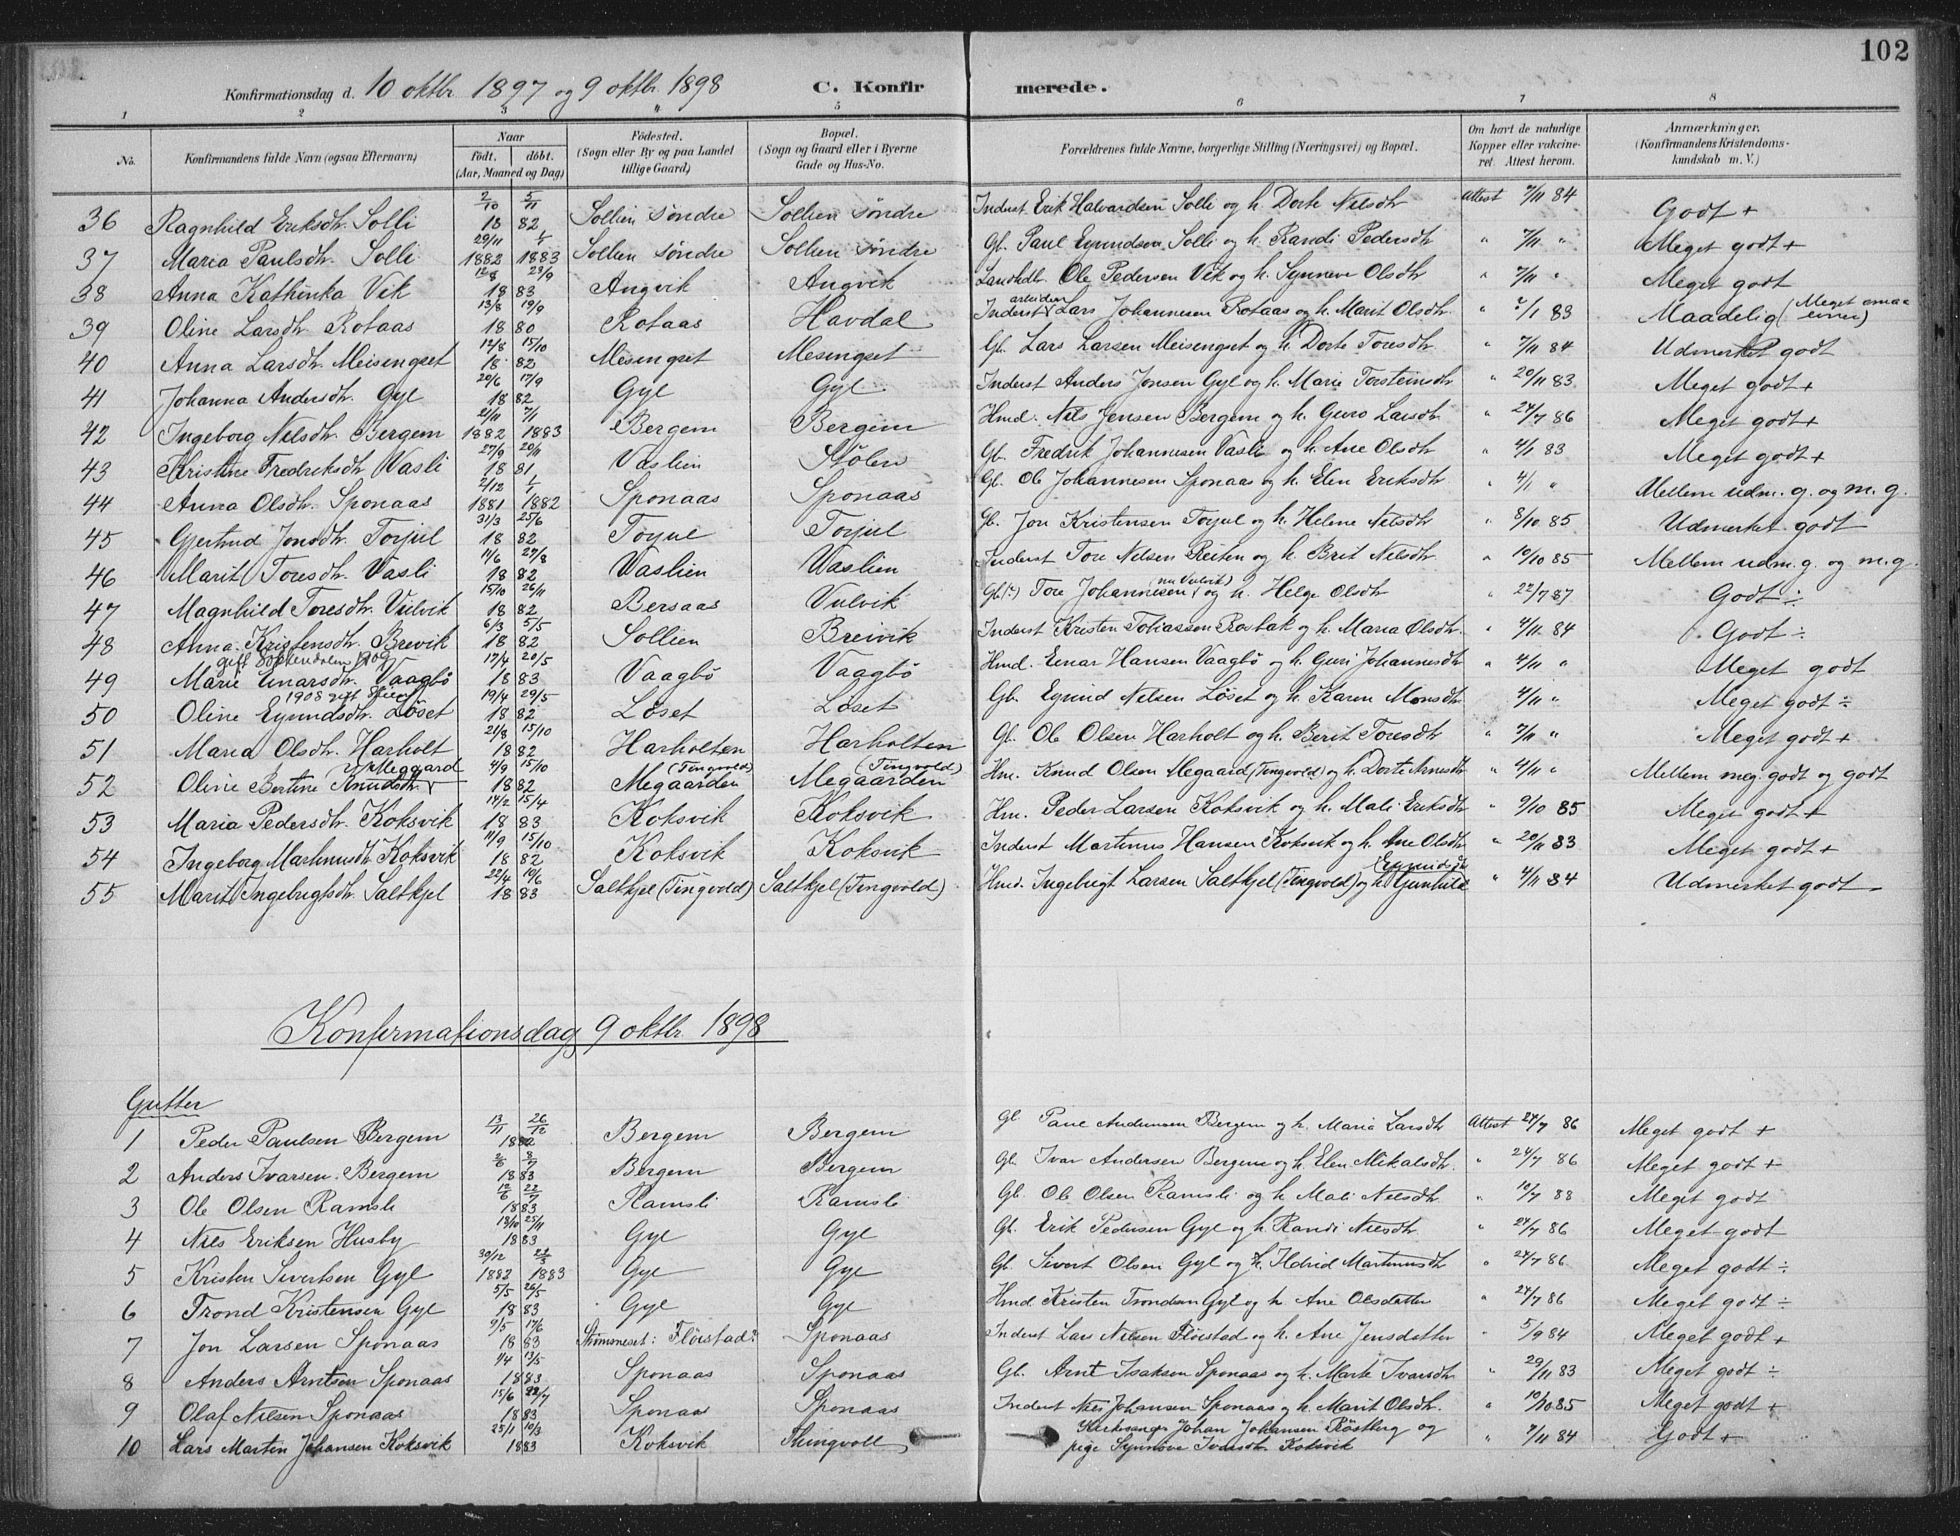 102
Konfirmationsdag d. 10 oktbr. 1897 og 9 oktbr. 1898 C. Konfir merede.
1 2 3 4 5 6 7 8
No. Konfirmandens fulde Navn (ogsaa Efternavn) Naar født. døbt. (Aar, Maaned og Dag) Fødested. (Sogn eller By og paa Landet tillige Gaard) Bopæl. (Sogn og Gaard eller i Byerne Gade og Hus-No. Forældrenes fulde Navne, borgerlige Stilling (Næringsvei) og Bopæl. Om havt de naturlige Kopper eller vakcineret. Attest herom. Anmærkninger. (Konfirmandens Kristendomskundskab m. V.)
36 Ragnhild Eriksdtr. Solli 2/10 5/11 1882 Sollien søndre Sollien søndre Inderst Erik Halvardsen Solli og h. Dorte Nilsdtr Attest 7/11 84 Godt +
37 Maria Paulsdtr. Solli 29/11 1882 1/1 1883 Sollien søndre Sollien søndre Gb. Paul Eyvindsen Solli og h. Randi Pedersdtr " 7/11 " Meget godt +
38 Anna Kathinka Vik 12/8 23/9 1883 Angvik Angvik Landhdl. Ole Pedersen Vik og h. Synneve Olsdtr " 7/11 " Meget godt
39 Oline Larsdtr. Rotaas 13/8 19/9 1880 Rotaas Havdal Inderst arbeider Lars Johannesen Rotaas og h. Marit Olsdtr. " 2/1 83 Maadelig (Meget smaa evner)
40 Anna Larsdtr. Meisengset 12/8 15/10 1882 Mesingset Mesingset Gb. Lars Larsen Meisengset og h. Dorte Toresdtr. " 7/11 84 Udmerket godt
41 Johanna Andersdtr. Gyl 20/6 17/9 1882 Gyl Gyl Inderst Anders Jonsen Gyl og h. Marie Torsteinsdtr. " 20/11 83 Meget godt +
42 Ingeborg Nilsdtr. Bergem 21/11 1882 7/1 1883 Bergem Bergem Hmd. Nils Jensen Bergem og h. Guro Larsdtr. " 24/7 86 Meget godt +
43 Kristine Fredriksdtr. Vasli 27/9 20/11 1881 Vaslien Stølen Gb. Fredrik Johannesen Vasli og h. Ane Olsdtr " 4/1 83 Meget godt +
44 Anna Olsdtr. Sponaas 2/12 1881 1/1 1882 Sponaas Sponaas Gb. Ole Johannesen Sponaas og h. Elen Eriksdtr " 4/1 " Mellem udm. g. og m. g.
45 Gjertrud Jonsdtr. Torjul 31/3 25/6 1882 Torjul Torjul Gb. Jon Kristensen Torjul og h. Helene Nilsdtr " 8/10 85 Udmerket godt
46 Marit Toresdtr. Vasli 11/6 27/8 1882 Vaslien Vaslien Inderst Tore Nilsen Reiten og h. Brit Nilsdtr " 10/10 85 Mellem udm. g. og m. g.
47 Magnhild Toresdtr. Vulvik 15/10 26/11 1882 Bersaas Vulvik Gb Tore Johannesen (nu Vulvik) og h. Helge Olsdtr " 22/7 87 Godt ÷
48 Anna Kristensdtr. Brevik 6/3 5/5 1882 Sollien Breivik Inderst Kristen Tobiassen og h. Maria Olsdtr. " 4/11 84 Godt ÷
49 Marie Einarsdtr. Vaagbø 17/4 20/5 1883 Vaagbø Vaagbø Hmd. Einar Hansen Vaagbø og h. Guri Johannesdtr " 4/11 " Meget godt
50 Oline Eyvindsdtr. Løset 19/4 29/5 1882 Løset Løset Gb. Eyvind Nilsen Løset og h. Karen Monsdtr " 4/11 " Meget godt ÷
51 Maria Olsdtr. Harholt 21/8 15/10 1882 Harholten Harholten Gb. Ole Olsen Harholt og h. Berit Toresdtr " 7/11 " Meget godt +
52 Oline Bertine Knudsdtr. Meggaard 4/9 15/10 1882 Megaarden (Tingvold) Megaarden (Tingvold) Hm. Knud Olsen Megaard (Tingvold) og h. Dorte Arnesdtr " 4/11 " Mellem meg. godt og godt
53 Maria Pedersdtr. Koksvik 14/2 15/4 1883 Koksvik Koksvik Hm. Peder Larsen Koksvik og h. Mali Eriksdtr " 9/10 85 Meget godt +
54 Ingeborg Martinusdtr. Koksvik 11/9 15/10 1882 Koksvik Koksvik Inderst Martinus Hansen Koksvik og h. Ane Olsdtr " 20/11 83 Meget godt +
55 Marit Ingebrigtsdtr. Saltkjel 22/4 10/6 1883 Saltkjel (Tingvold) Saltkjel (Tingvold) Hmd. Ingebrigt Larsen Saltkjel (Tingvold) og h. Gunhild Eyvindsdtr " 4/11 84 Udmerket godt
Konfirmationsdag 9 oktbr. 1898
Gutter
1 Peder Paulsen Bergem 13/11 26/12 1882 Bergem Bergem Gb. Andersen Bergem og h. Maria Larsdtr Attest 24/7 86 Meget godt +
2 Anders Ivarsen Bergem 2/6 8/7 1883 Bergem Bergem Gb. Ivar Andersen Bergem og h. Elen Mikalsdtr. " 24/7 86 Meget godt +
3 Ole Olsen Ramsli 12/6 22/7 1883 Ramsli Ramsli Gb. Ole Olsen Ramsli og h. Mali Nilsdtr. " 12/7 88 Meget godt
4 Nils Eriksen Husby 18/10 25/11 1883 Gyl Gyl Gb. Erik Pedersen Gyl og h. Randi Nilsdtr. " 24/7 86 Meget godt
5 Kristen Sivertsen Gyl 30/12 1882 1883 Gyl Gyl Gb. Sivert Olsen Gyl og h. Martinusdtr " 24/7 86 Meget godt ÷
6 Trond Kristensen Gyl 5/5 26/5 1883 Gyl Gyl Hmd. Kristen Trondsen Gyl og h. Ane Olsdatter " 24/7 86 Meget godt ÷
7 Jon Larsen Sponaas 9/5 17/6 1883 Strømsneset: Fløistad Sponaas Inderst Lars Nilsen Fløistad og h. Ane Jensdatter " 5/9 84 Meget godt +
8 Anders Arntsen Sponaas 9/4 13/5 1883 Sponaas Sponaas Gb. Arnt Isaksen Sponaas og h. Marte Ivarsdtr " 29/11 83 Meget godt ÷
9 Olaf Nilsen Sponaas 15/6 22/7 1883 Sponaas Sponaas Inderst Nils Johansen Sponaas og h. Marit Olsdtr. " 10/10 85 Meget godt +
10 Lars Martin Johansen Koksvik 25/1 10/3 1883 Koksvik Thingvoll Kirkesanger Johan Johansen Røstberg og pige Synnøve Ivarsdtr Koksvik " 7/11 84 Godt +